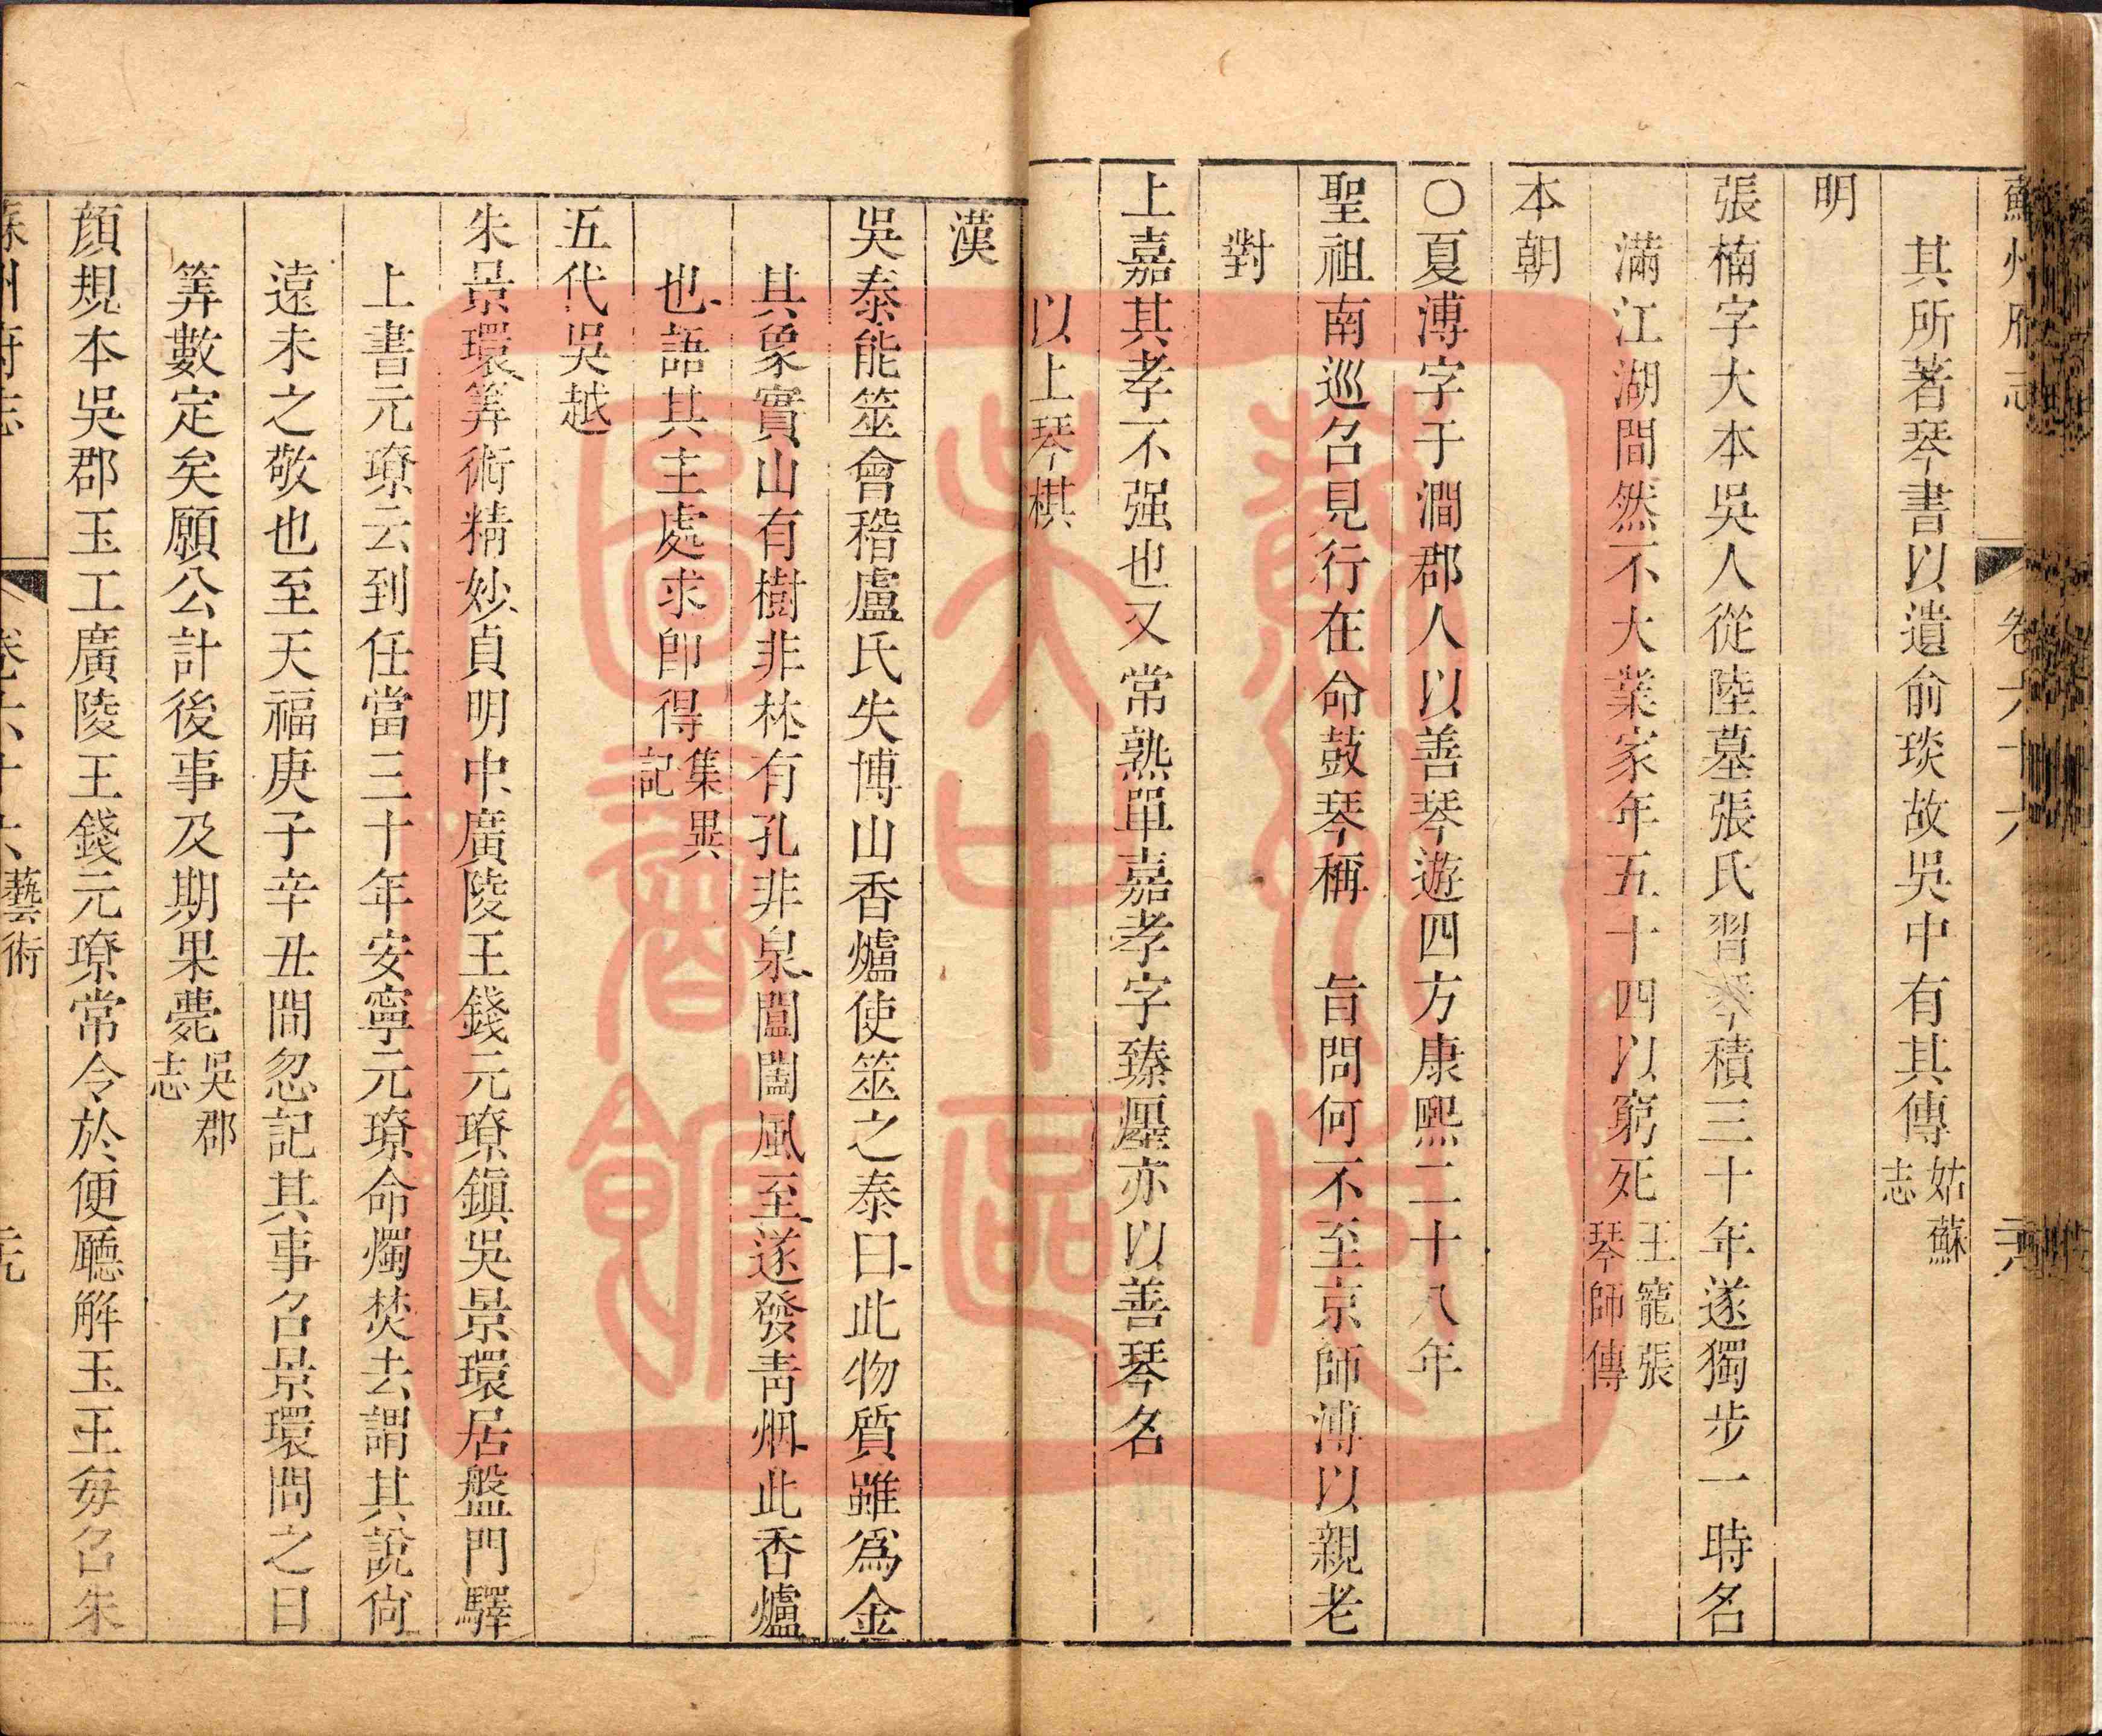 蘇州府志 卷六十六
其所著琴書以遺俞琰故吳中有其傳姑蘇志
明
張楠字大本吳人從陸墓張氏習琴積三十年遂獨步一時名
滿江湖間然不大業家年五十四以窮死王寵張琴師傳
本朝
○夏溥字于澗郡人以善琴遊四方康熙二十八年
聖祖南巡召見行在命鼓琴稱 旨問何不至京師溥以親老
對
上嘉其孝不强也又常熟單嘉孝字臻廛亦以善琴名
以上琴棋
漢
吳泰能筮會稽盧氏失博山香爐使筮之泰曰此物質雖爲金
其象實山有樹非林有孔非泉闔闔風至遂發青烟此香爐
也語其主處求卽得集異記
五代吳越
朱景環筭術精妙貞明中廣陵王錢元璙鎭吳景環居盤門驛
上書元璙云到任當三十年安寧元璙命燭焚去謂其說尙
遠未之敬也至天福庚子辛丑間忽記其事召景環問之曰
筭數定矣願公計後事及期果薨吳郡志
顔規本吳郡玉工廣陵王錢元璙常令於便廳解玉王每召朱
蘇州府志 卷六十六 藝術 元
蘇州大中區圖書館